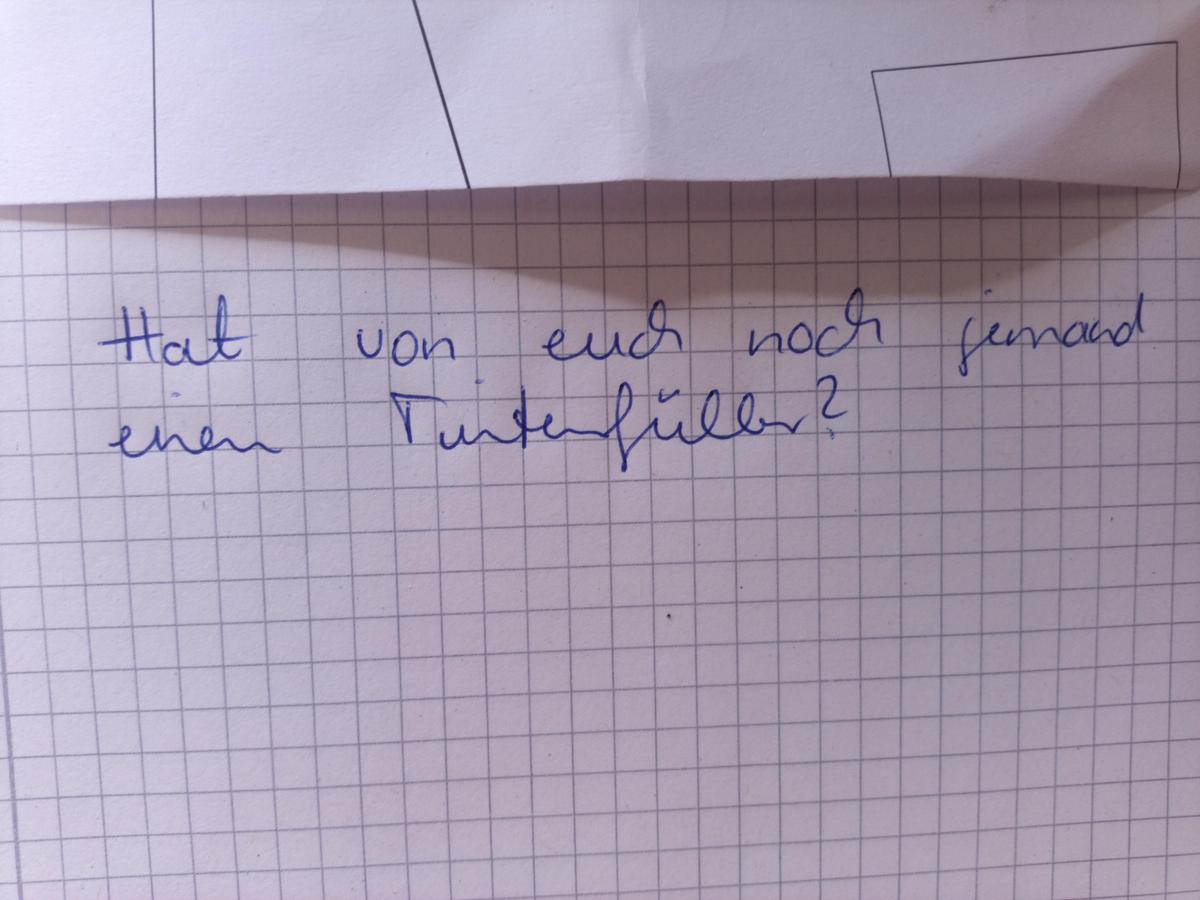 Hat von euch noch jemand
einen Tintenfüller?